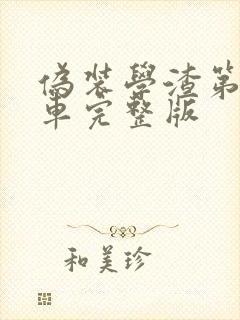 偽裝學渣第
車完整版
和美珍